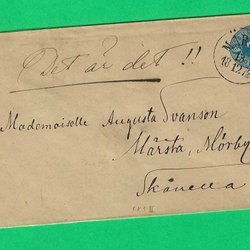 Det är det !!
Mademoiselle Augusta Svanson
Märsta, Mörby
Skånella